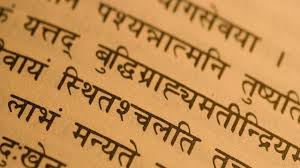 गसेवया ।
पश्यन्नात्मनि तुष्यति
यत्तद् बुद्धिग्राह्यमतीन्द्रिय
वायं स्थितश्चलति
लाभं मन्यते
दुःखेन